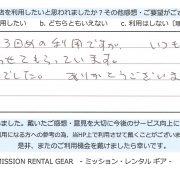 を利用したいと思われましたか?その感想・ご要望がござ
用したい b. どちらともいえない c. 利用はしない(理
3回めの利用ですが、いつも
せてもらっています。
でした。 ありがとうございま
いました。戴いたご感想・意見を大切に今後のサービス向上に
利用になる方への参考の為、当HP上で利用させて戴くことがございま
是非、またのご利用機会を戴けましたら幸いです。
MISSION RENTAL GEAR - ミッション・レンタル ギア -